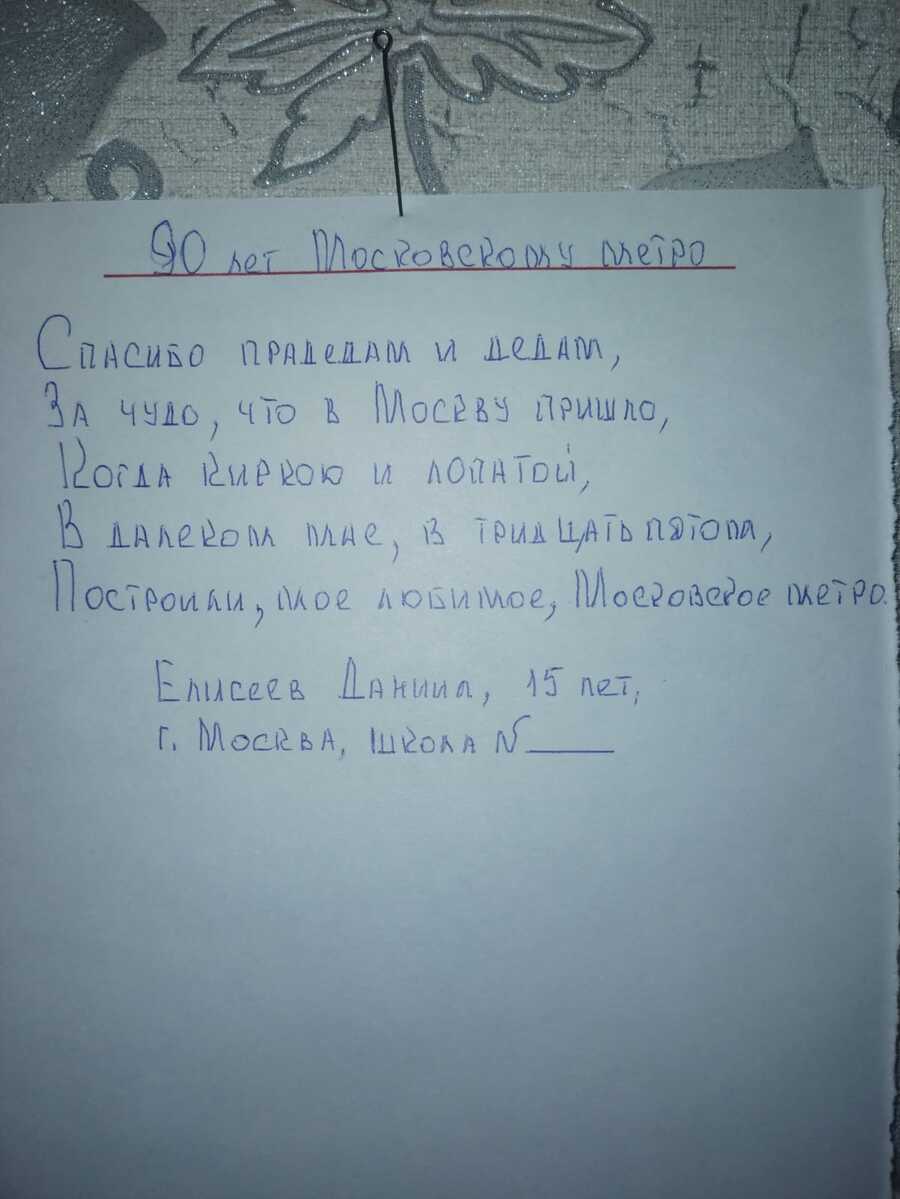 90 лет Московскому метро
Спасибо прадедам и дедам,
За чудо, что в Москву пришло,
Когда киркою и лопатой,
В далеком мае, в тридцать пятом,
Построили, мое любимое, Московское метро.
Елисеев Даниил, 15 лет,
г. Москва, школа №____